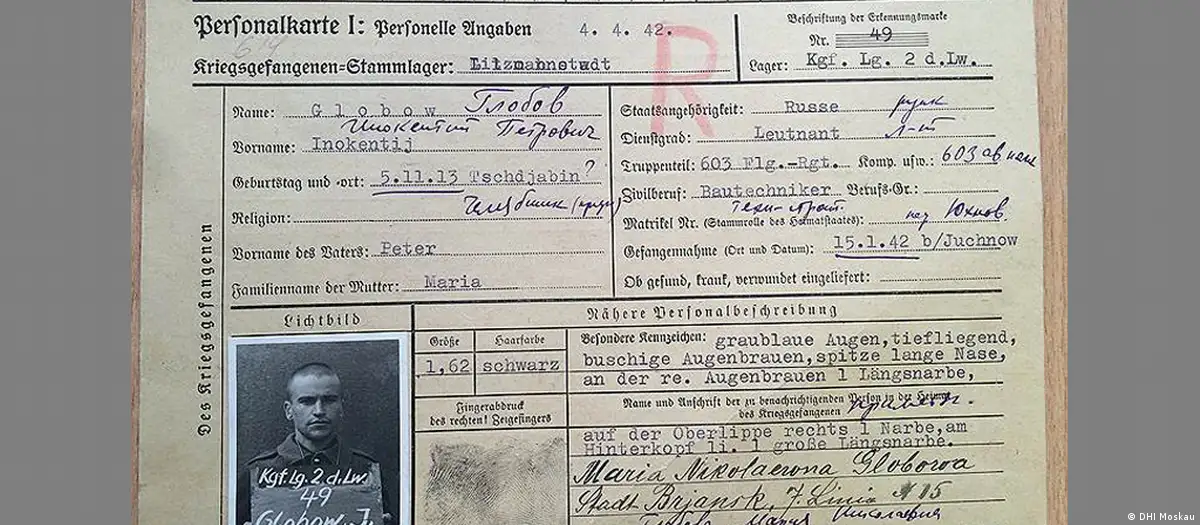 Personalkarte I: Personelle Angaben
4. 4. 42.
Beschriftung der Erkennungsmarke
Nr. 49
Kriegsgefangenen-Stammlager: Litzmannstadt
Lager: Kgf. Lg. 2 d.Lw.
R
Des Kriegsgefangenen
Name: Globow Глобов
Инокентий Петрович
Vorname: Inokentij
Geburtstag und -ort: 5.11.13 Tschdjabin?
Religion:
Vorname des Vaters: Peter
Familienname der Mutter: Maria
Staatsangehörigkeit: Russe
Dienstgrad: Leutnant Л-т
Truppenteil: 603 Flg.-Rgt. Komp. usw.: 603 ав
Zivilberuf: Bautechniker Berufs-Gr.:
Matrikel Nr. (Stammrolle des Heimatstaates): Юхнов.
Gefangennahme (Ort und Datum): 15.1.42 b/Juchnow
Ob gesund, krank, verwundet eingeliefert:
Lichtbild
Nähere Personalbeschreibung
Größe
Haarfarbe
1,62
schwarz
Besondere Kennzeichen: graublaue Augen,tiefliegend,
buschige Augenbrauen,spitze lange Nase,
an der re. Augenbrauen 1 Längsnarbe,
Fingerabdruck
des rechten! Zeigefingers
Name und Anschrift der zu benachrichtigenden Person in der Heimat
des Kriegsgefangenen
auf der Oberlippe rechts 1 Narbe,am
Hinterkopf li. 1 große Längsnarbe.
Maria Nikolaewna Globowa
Stadt Brjansk, 7. Linia № 15
Мария Николаевна
Kgf. Lg. 2 d. Lw.
49
Globow, J.
© DHI Moskau